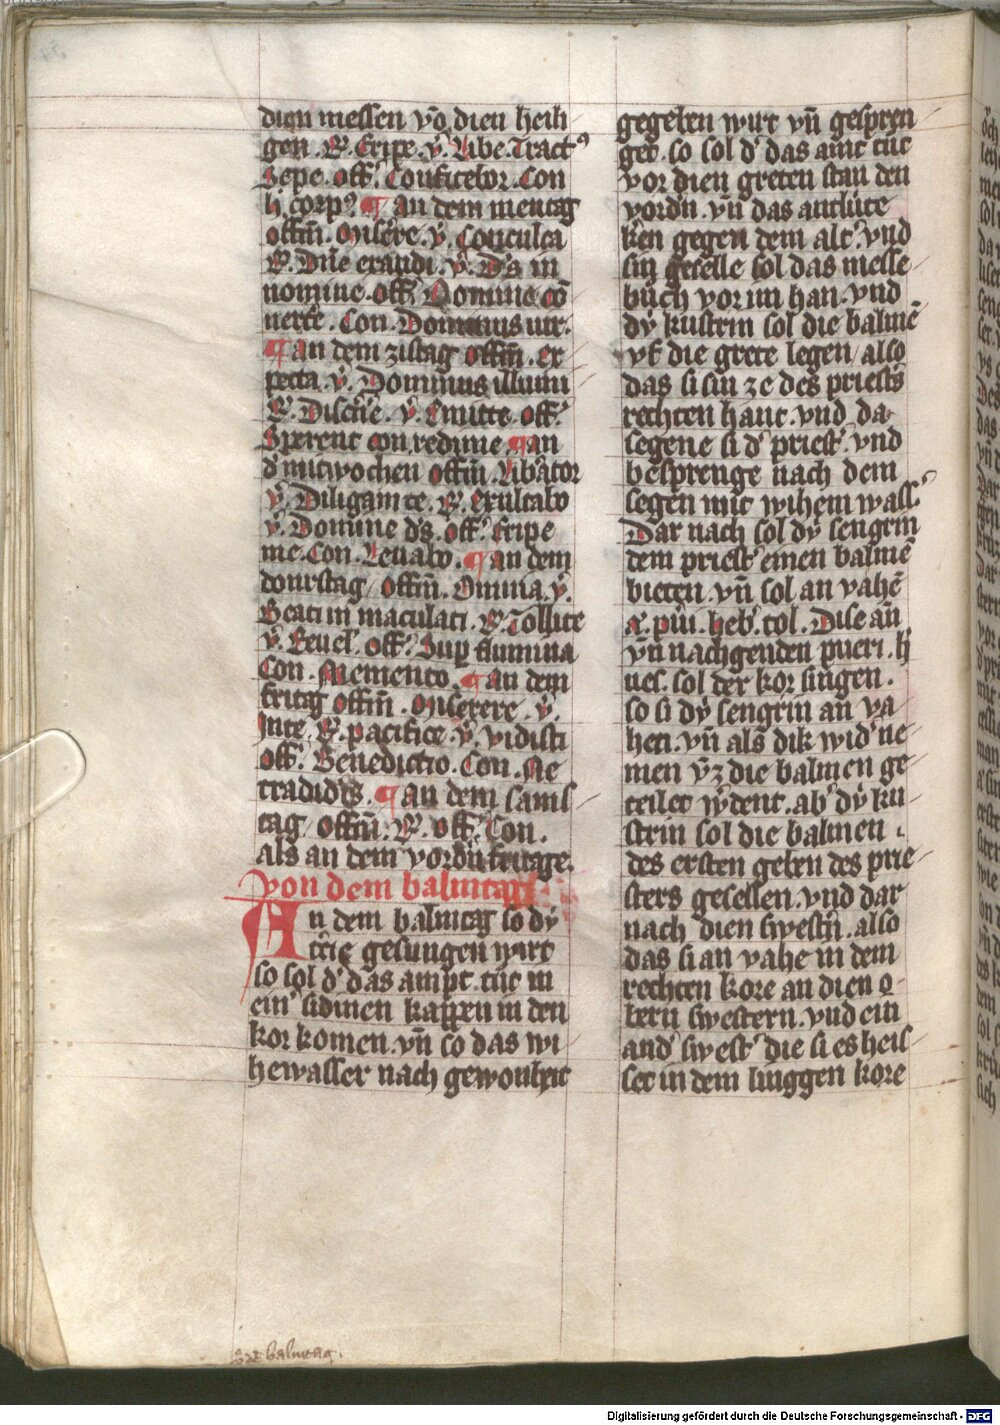 dien messen vō dien heili
gen. ℟. Eripe. ỹ. Libe. Tractꝰ
Sepe. off̄. Confitebor. Con
h̄ corpꝰ ¶ an dem mentag
offm̄. Misere. ỹ. Conculca
℟. Dn̄e exaudi. ỹ. Ds̄ in
nomine. off̄. Domine cō
uerte. Con. Dominus uir.
¶ an dem zistag offm̄. ex
pecta. ỹ. Dominus illumi
℟. Discn̄e. ỹ. Emitte. off̄.
Sperent con redime ¶ an
d' mitwochen offm̄. Lib'ator
ỹ. Diligam te. ℟. Exultabo
ỹ. Domine ds̄. off̄. Eripe
me. Con. Leuabo. ¶ an dem
donrstag / offm̄. Omnia. ỹ.
Beati in maculati. ℟. Tollite
ỹ. Reuel'. off̄. Sup flumina
Con. Memento. ¶ an dem
fritag offm̄. Miserere. ỹ.
Inte. ℟. pacifice ỹ. vidisti
off̄. Benedictio. Con. Ne
tradid'is. ¶ an dem sams
tag / offm̄. ℟. off̄. Con.
als an dem vordn̄ fritage.
von dem balmtag
An dem balmtag so dỹ
t'cie gesungen wirt
so sol d' das ampt tůt in
ein' sidinen kappen in den
kor komen. vn̄ so das wi
hewasser nach gewonheit
gegeben wirt vn̄ gespren
get. so sol d' das amt tůt
vor dien greten stan den
vordn. vn̄ das antlúte
ken gegen dem alt'. vnd
sin geselle sol das messe
bůch vor im han. vnd
dỹ kustrin sol die balmē
vf die grete legen / also
das si sin ze des priest's
rechten hant. vnd da
segene si d' priest'. vnd
besprenge nach dem
segen mit wihem wass'
Dar nach sol dỹ sengrin
dem priest' einen balmē
bieten. vn̄ sol an vahē
a. piii. heb'. tol. Dise an̄
vn̄ nachgenden pueri. h
ues. sol der kor singen.
so si dỹ sengrin an va
het. vn̄ als dik wid' ne
men vz die balmen ge
teilet w'dent. ab' dỹ ku
strin sol die balmen
des ersten geben des prie
sters gesellen. vnd dar
nach dien swestn̄. also
das si an vahe in dem
rechten kore an dien o
bern swestern. vnd ein
and' swest' die si es heis
set in dem linggen kore
balmtag.
Digitalisierung gefördert durch die Deutsche Forschungsgemeinschaft - DFG